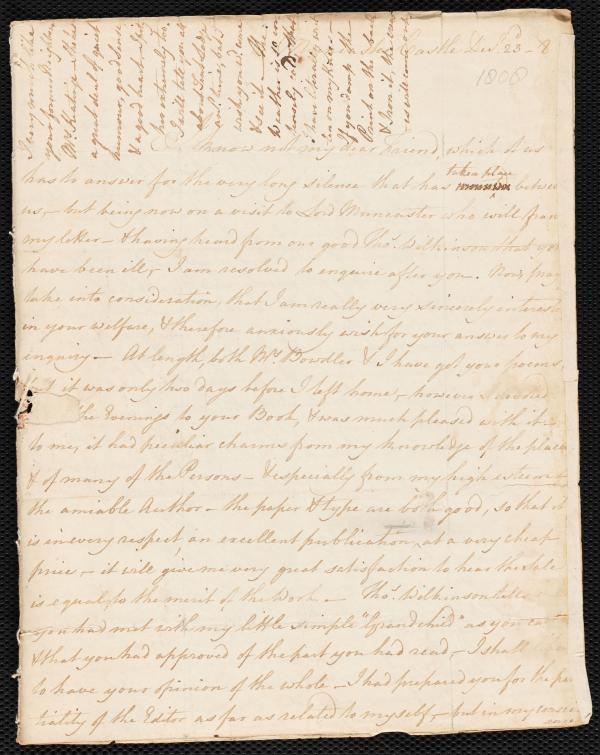 Muncaster Castle Decr. 23d - 8
1808
I know not my dear Friend, which of us
has to answer for the very long silence that has taken place between
us, - but being now on a visit to Lord Muncaster who will frank
my letter - & having heard from our good Thos. Wilkinson that you
have been ill, - I am resolved to enquire after you. Now, pray
take into consideration, that I am really very sincerely interested
in your welfare, & therefore anxiously wish for your answer to my
inquiry - At length, both Mrs. Bowdler & I have got your poems,
but it was only two days before I left home, - however I devoted
the Evenings to your Book, & was much pleased with it -
to me, it had peculiar charms from my knowledge of the places
& of many of the Persons - & especially from my high esteem for
the amiable Author - the paper & type are both good, so that it
is in every respect, an excellent publication, at a very cheap
price, - it will give me very great satisfaction to hear the Sale
is equal to the merit of the Work. - Thos. Wilkinson tells
you had met with my little simple "Grandchild" as you call
& that you had approved of the part you had read, - I shall
to have your opinion of the whole - I had prepared you for the par
tiality of the Editor as far as related to myself, - but in my
I very much like
your former Neighbor
Mr.
a great deal of wit
humour, good sense
& a good heart
I will tell you
about
wish you
& see it - the
weather is so
that
I have
in on my knee -
if you damp the
Print on the back
& Iron it, the
will come out